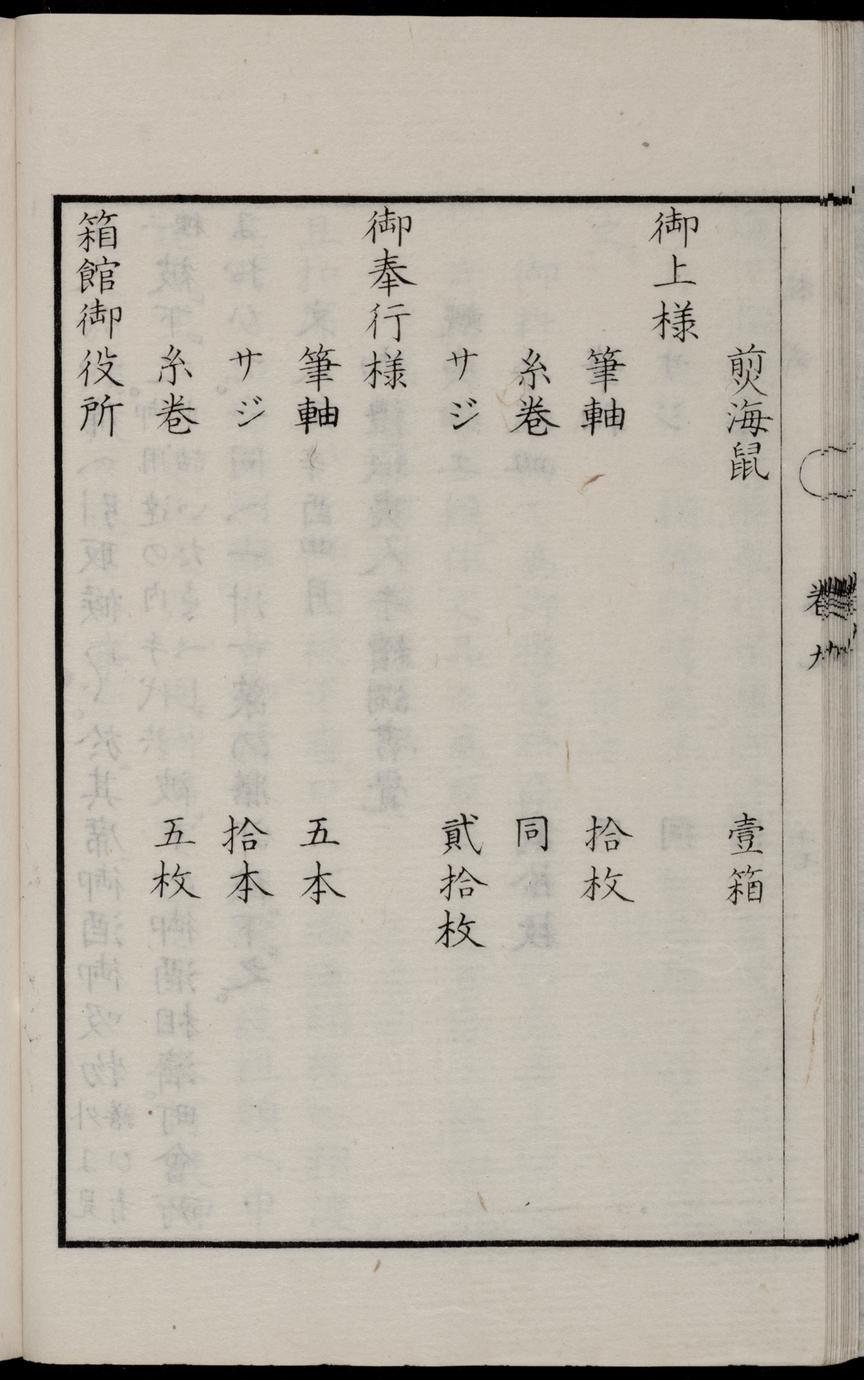 煎海鼠　壹箱
御上様
筆軸　拾枚
糸巻　同
サジ　貳拾枚
御奉行様
筆軸　五本
サジ　拾本
糸巻　五枚
箱館御役所